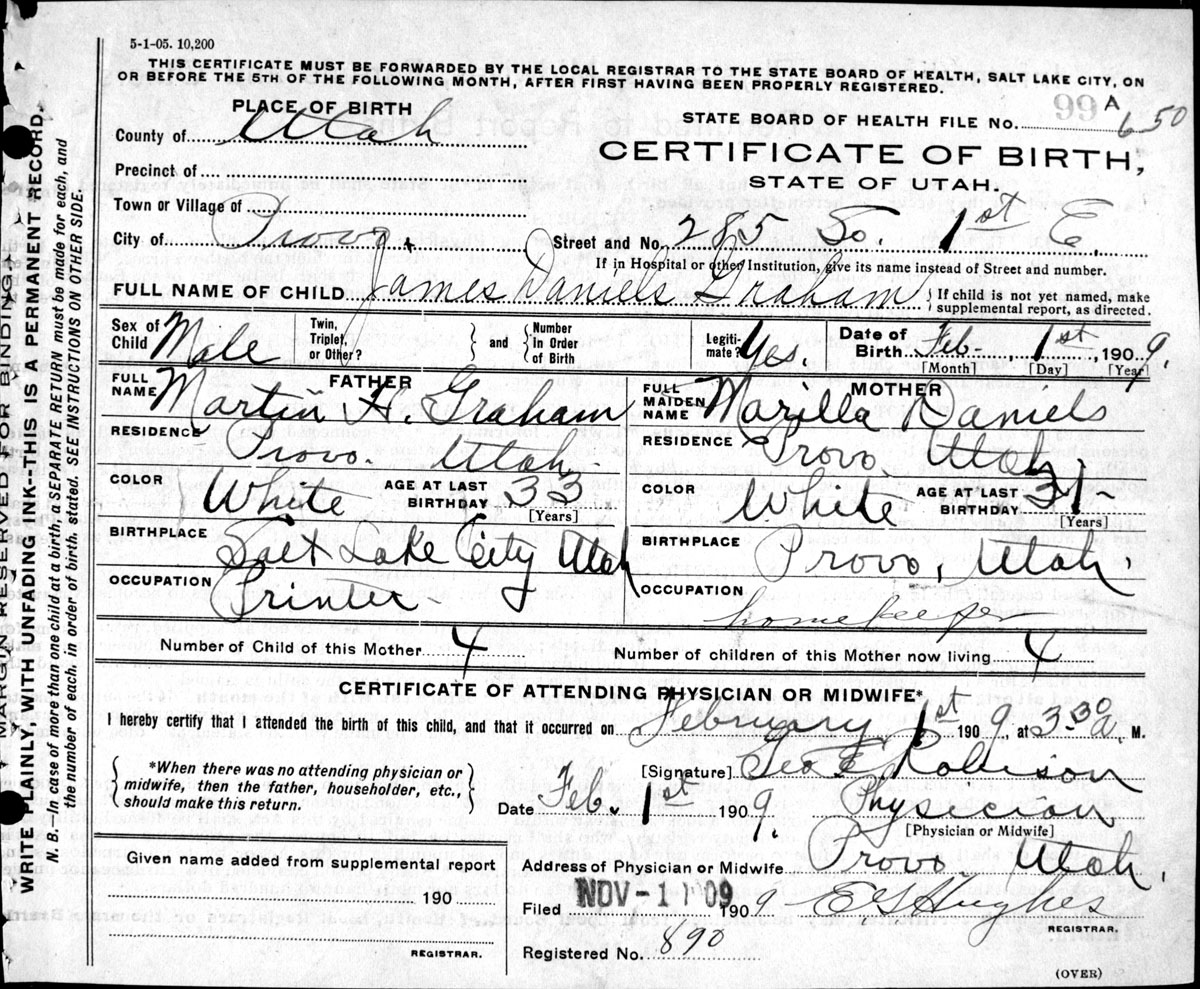 5-1-05. 10,200
THIS CERTIFICATE MUST BE FORWARDED BY THE LOCAL REGISTRAR TO THE STATE BOARD OF HEALTH, SALT LAKE CITY, ON
OR BEFORE THE 5TH OF THE FOLLOWING MONTH, AFTER FIRST HAVING BEEN PROPERLY REGISTERED.
PLACE OF BIRTH
County of Utah
STATE BOARD OF HEALTH FILE No. 99 A 650
CERTIFICATE OF BIRTH,
STATE OF UTAH.
Precinct of
Town or Village of
City of Provo Street and No. 285 So. 1st E.
If in Hospital or other Institution, give its name instead of Street and number.
FULL NAME OF CHILD James Daniels Graham { If child is not yet named, make supplemental report, as directed.
Sex of Child Male Twin, Triplet, or Other? } and { Number in Order of Birth Legiti-mate? Yes. Date of Birth Feb. 1st, 1909.
[Month] [Day] [Year]
FATHER MOTHER
FULL NAME Martin H. Graham FULL MAIDEN NAME Marilla Daniels
RESIDENCE Provo. Utah RESIDENCE Provo, Utah.
COLOR White AGE AT LAST BIRTHDAY 33 [Years] COLOR White AGE AT LAST BIRTHDAY 31 [Years]
BIRTHPLACE Salt Lake City Utah BIRTHPLACE Provo, Utah.
OCCUPATION Printer OCCUPATION homekeeper
Number of Child of this Mother 4 Number of children of this Mother now living 4
CERTIFICATE OF ATTENDING PHYSICIAN OR MIDWIFE*
I hereby certify that I attended the birth of this child, and that it occurred on February 1st 1909, at 3.30 a. M.
{ *When there was no attending physician or midwife, then the father, householder, etc., should make this return. }
[Signature] Geo E. Robison
Date Feb. 1st 1909. Physician
[Physician or Midwife]
Given name added from supplemental report
190
REGISTRAR.
Address of Physician or Midwife Provo, Utah.
Filed NOV -1 '09 1909 E S Hughes
REGISTRAR.
Registered No. 890
(OVER)
MARGIN RESERVED FOR BINDING.
WRITE PLAINLY, WITH UNFADING INK--THIS IS A PERMANENT RECORD.
N. B.—In case of more than one child at a birth, a SEPARATE RETURN must be made for each, and
the number of each, in order of birth, stated. SEE INSTRUCTIONS ON OTHER SIDE.